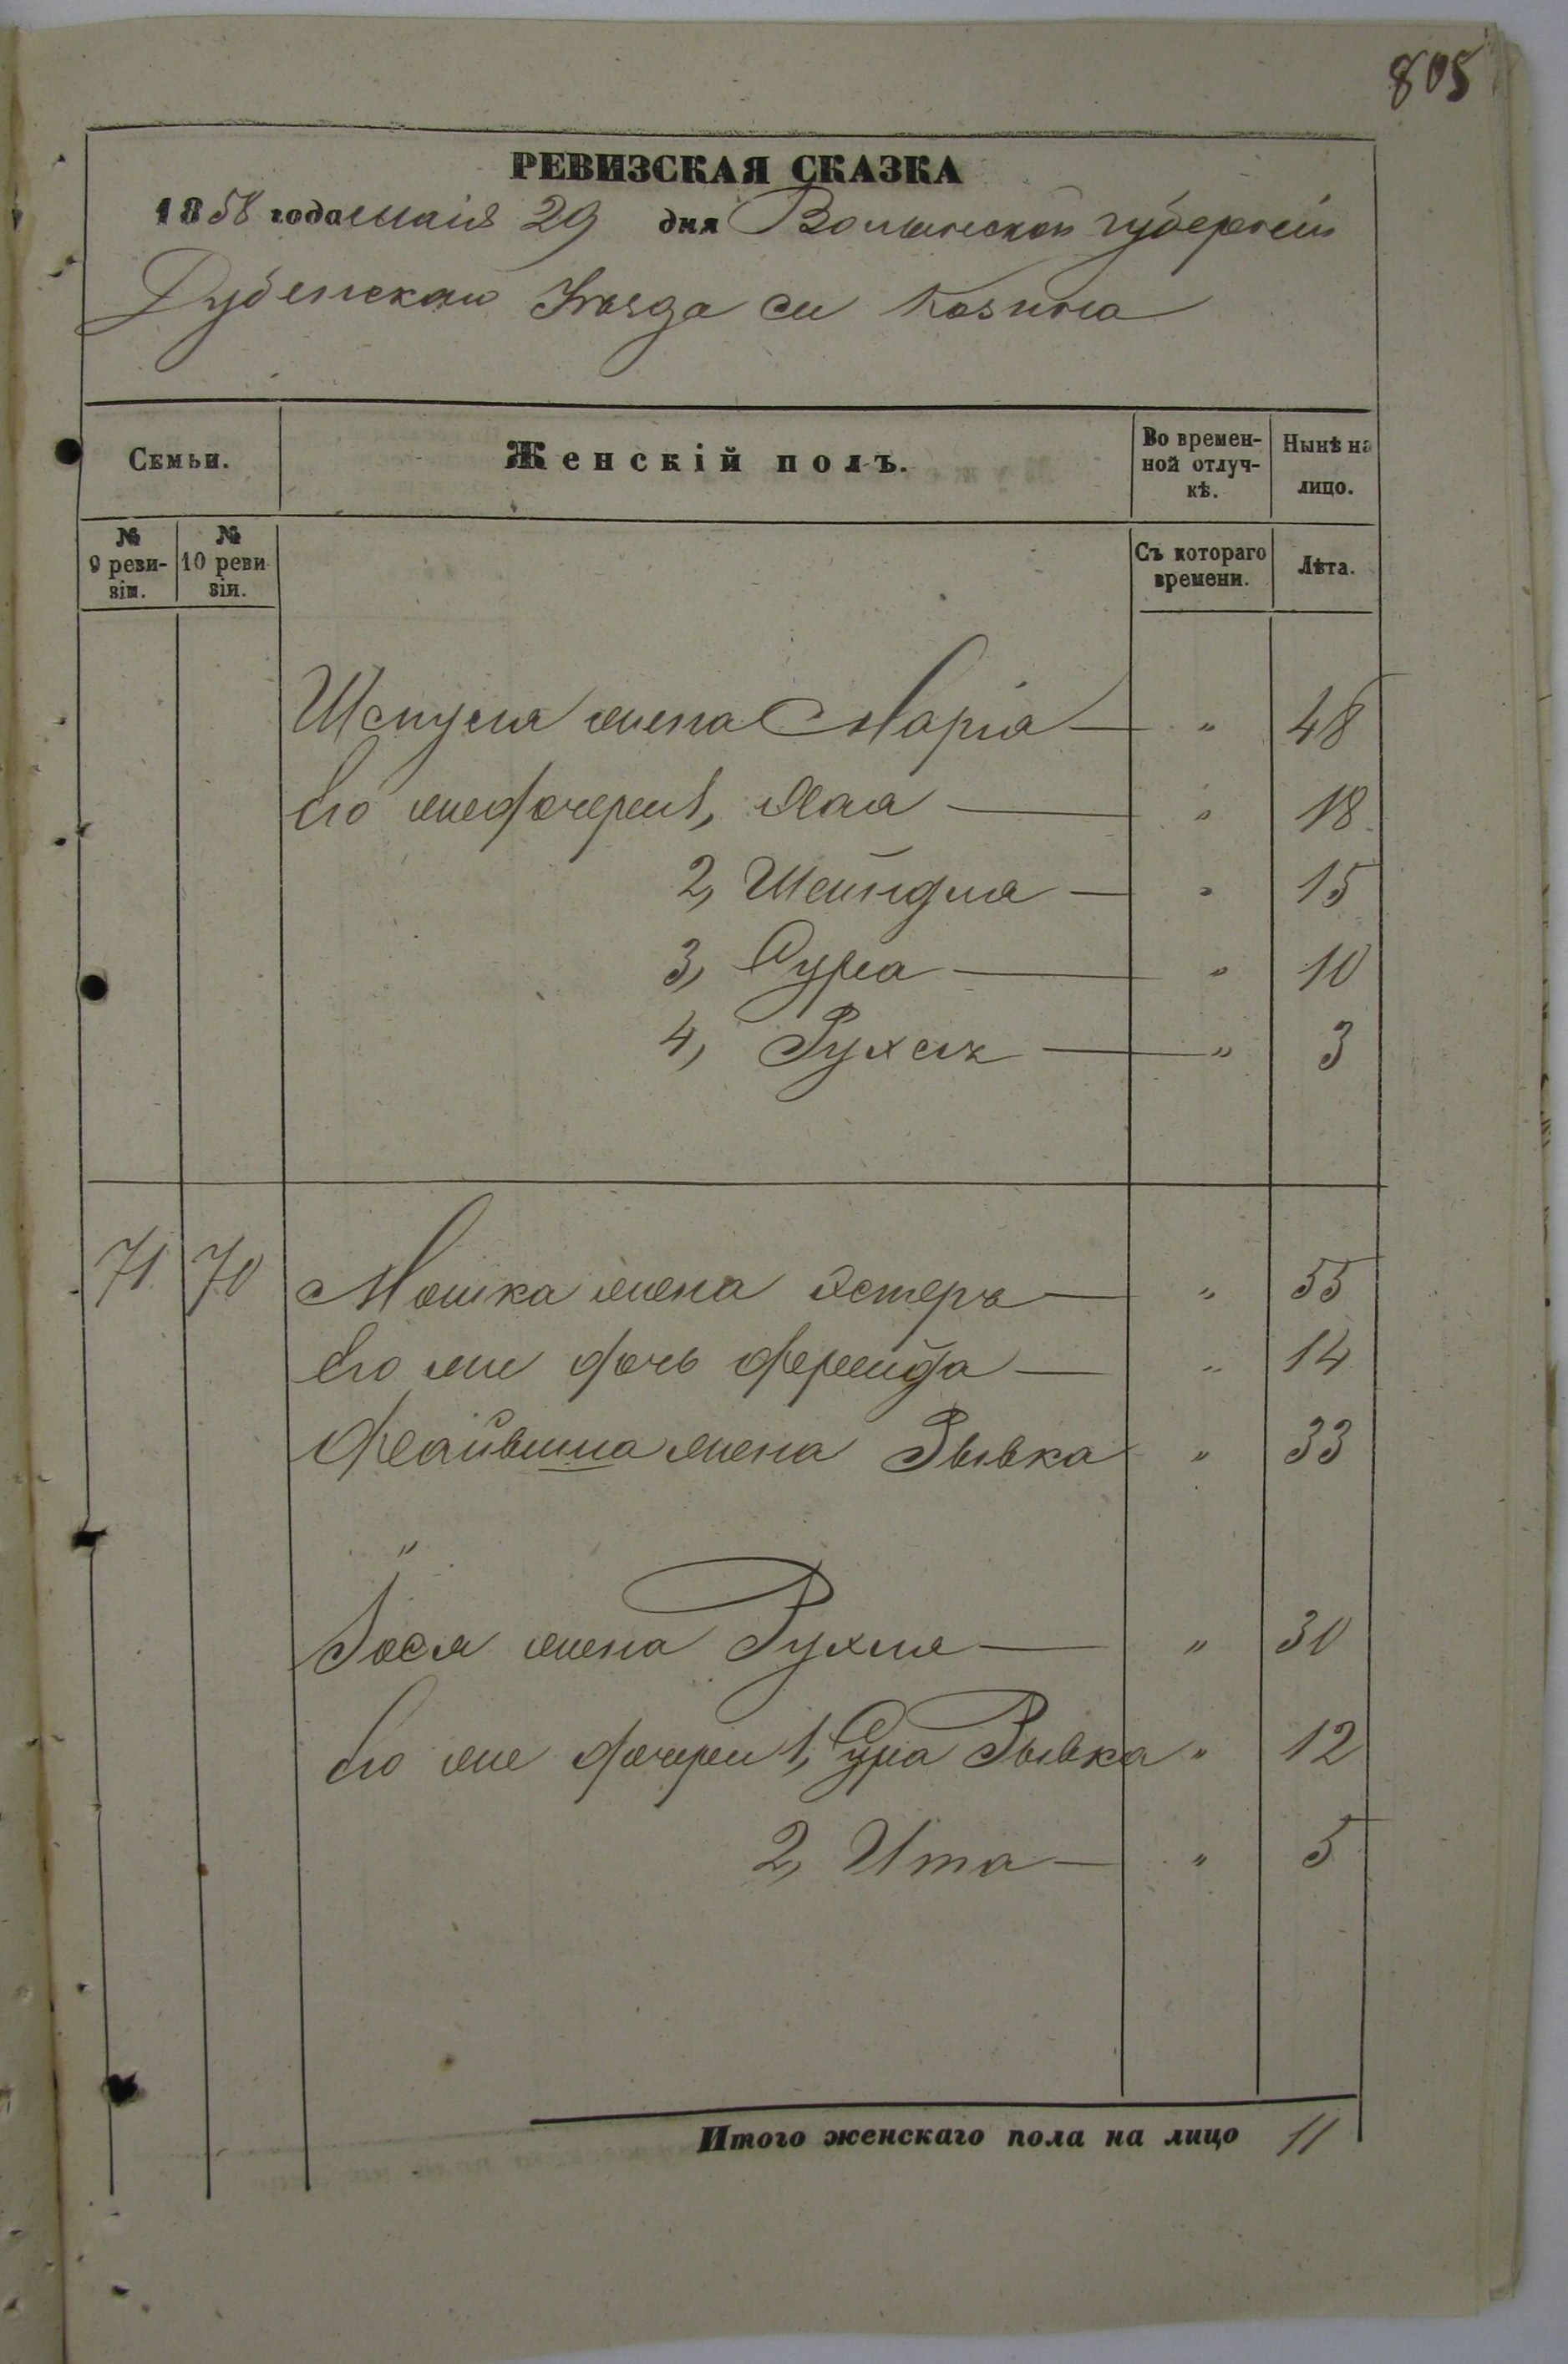 805
РЕВИЗСКАЯ СКАЗКА
1858 года маія 29 дня Волынской губерніи
Дубенскаго Уѣзда м. Козина
Семьи.
Женскій полъ.
Во времен-
ной отлуч-
кѣ.
Нынѣ на
лицо.
№
9 реви-
зіи.
№
10 реви
зіи.
Съ котораго
времени.
Лѣта.
Шмуля жена Марія — " 48
Его же дочери 1, — " 18
2, Шейндля — " 15
3, Сура — " 10
4, — " 3
71 70 Мошка жена Эстеръ — " 55
Его же дочь Фрейда — " 14
Файвиша жена Рывка " 33
"
Іося жена Рухля — " 30
Его же дочери 1, Сура Рывка " 12
2, Ита — " 5
Итого женскаго пола на лицо 11